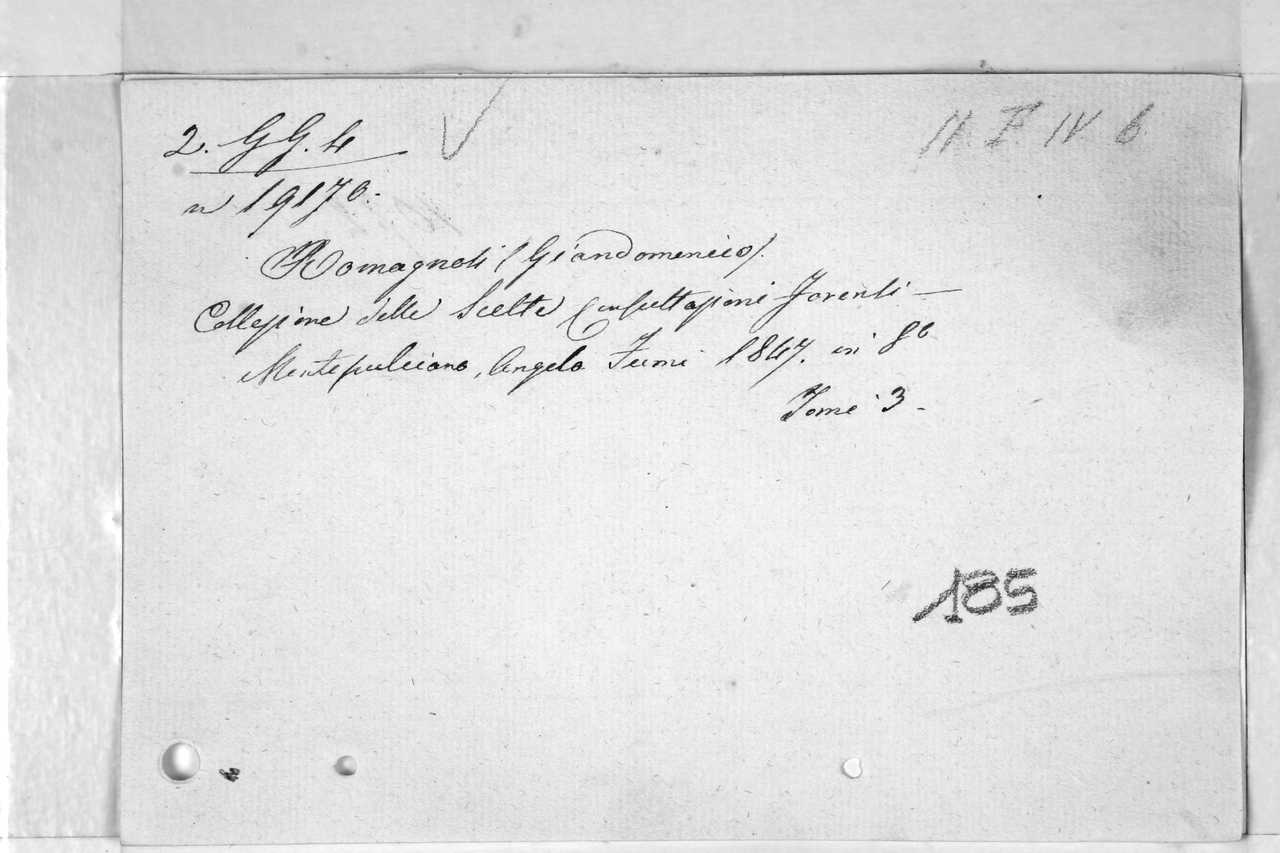 2. GG. 4
II F IV 6
n 19170.
Romagnoli (Giandomenico).
Collezione delle Scelte Consultazioni Forensi —
Montepulciano, Angelo Fumi 1847. in 8º
Tomi 3.
185